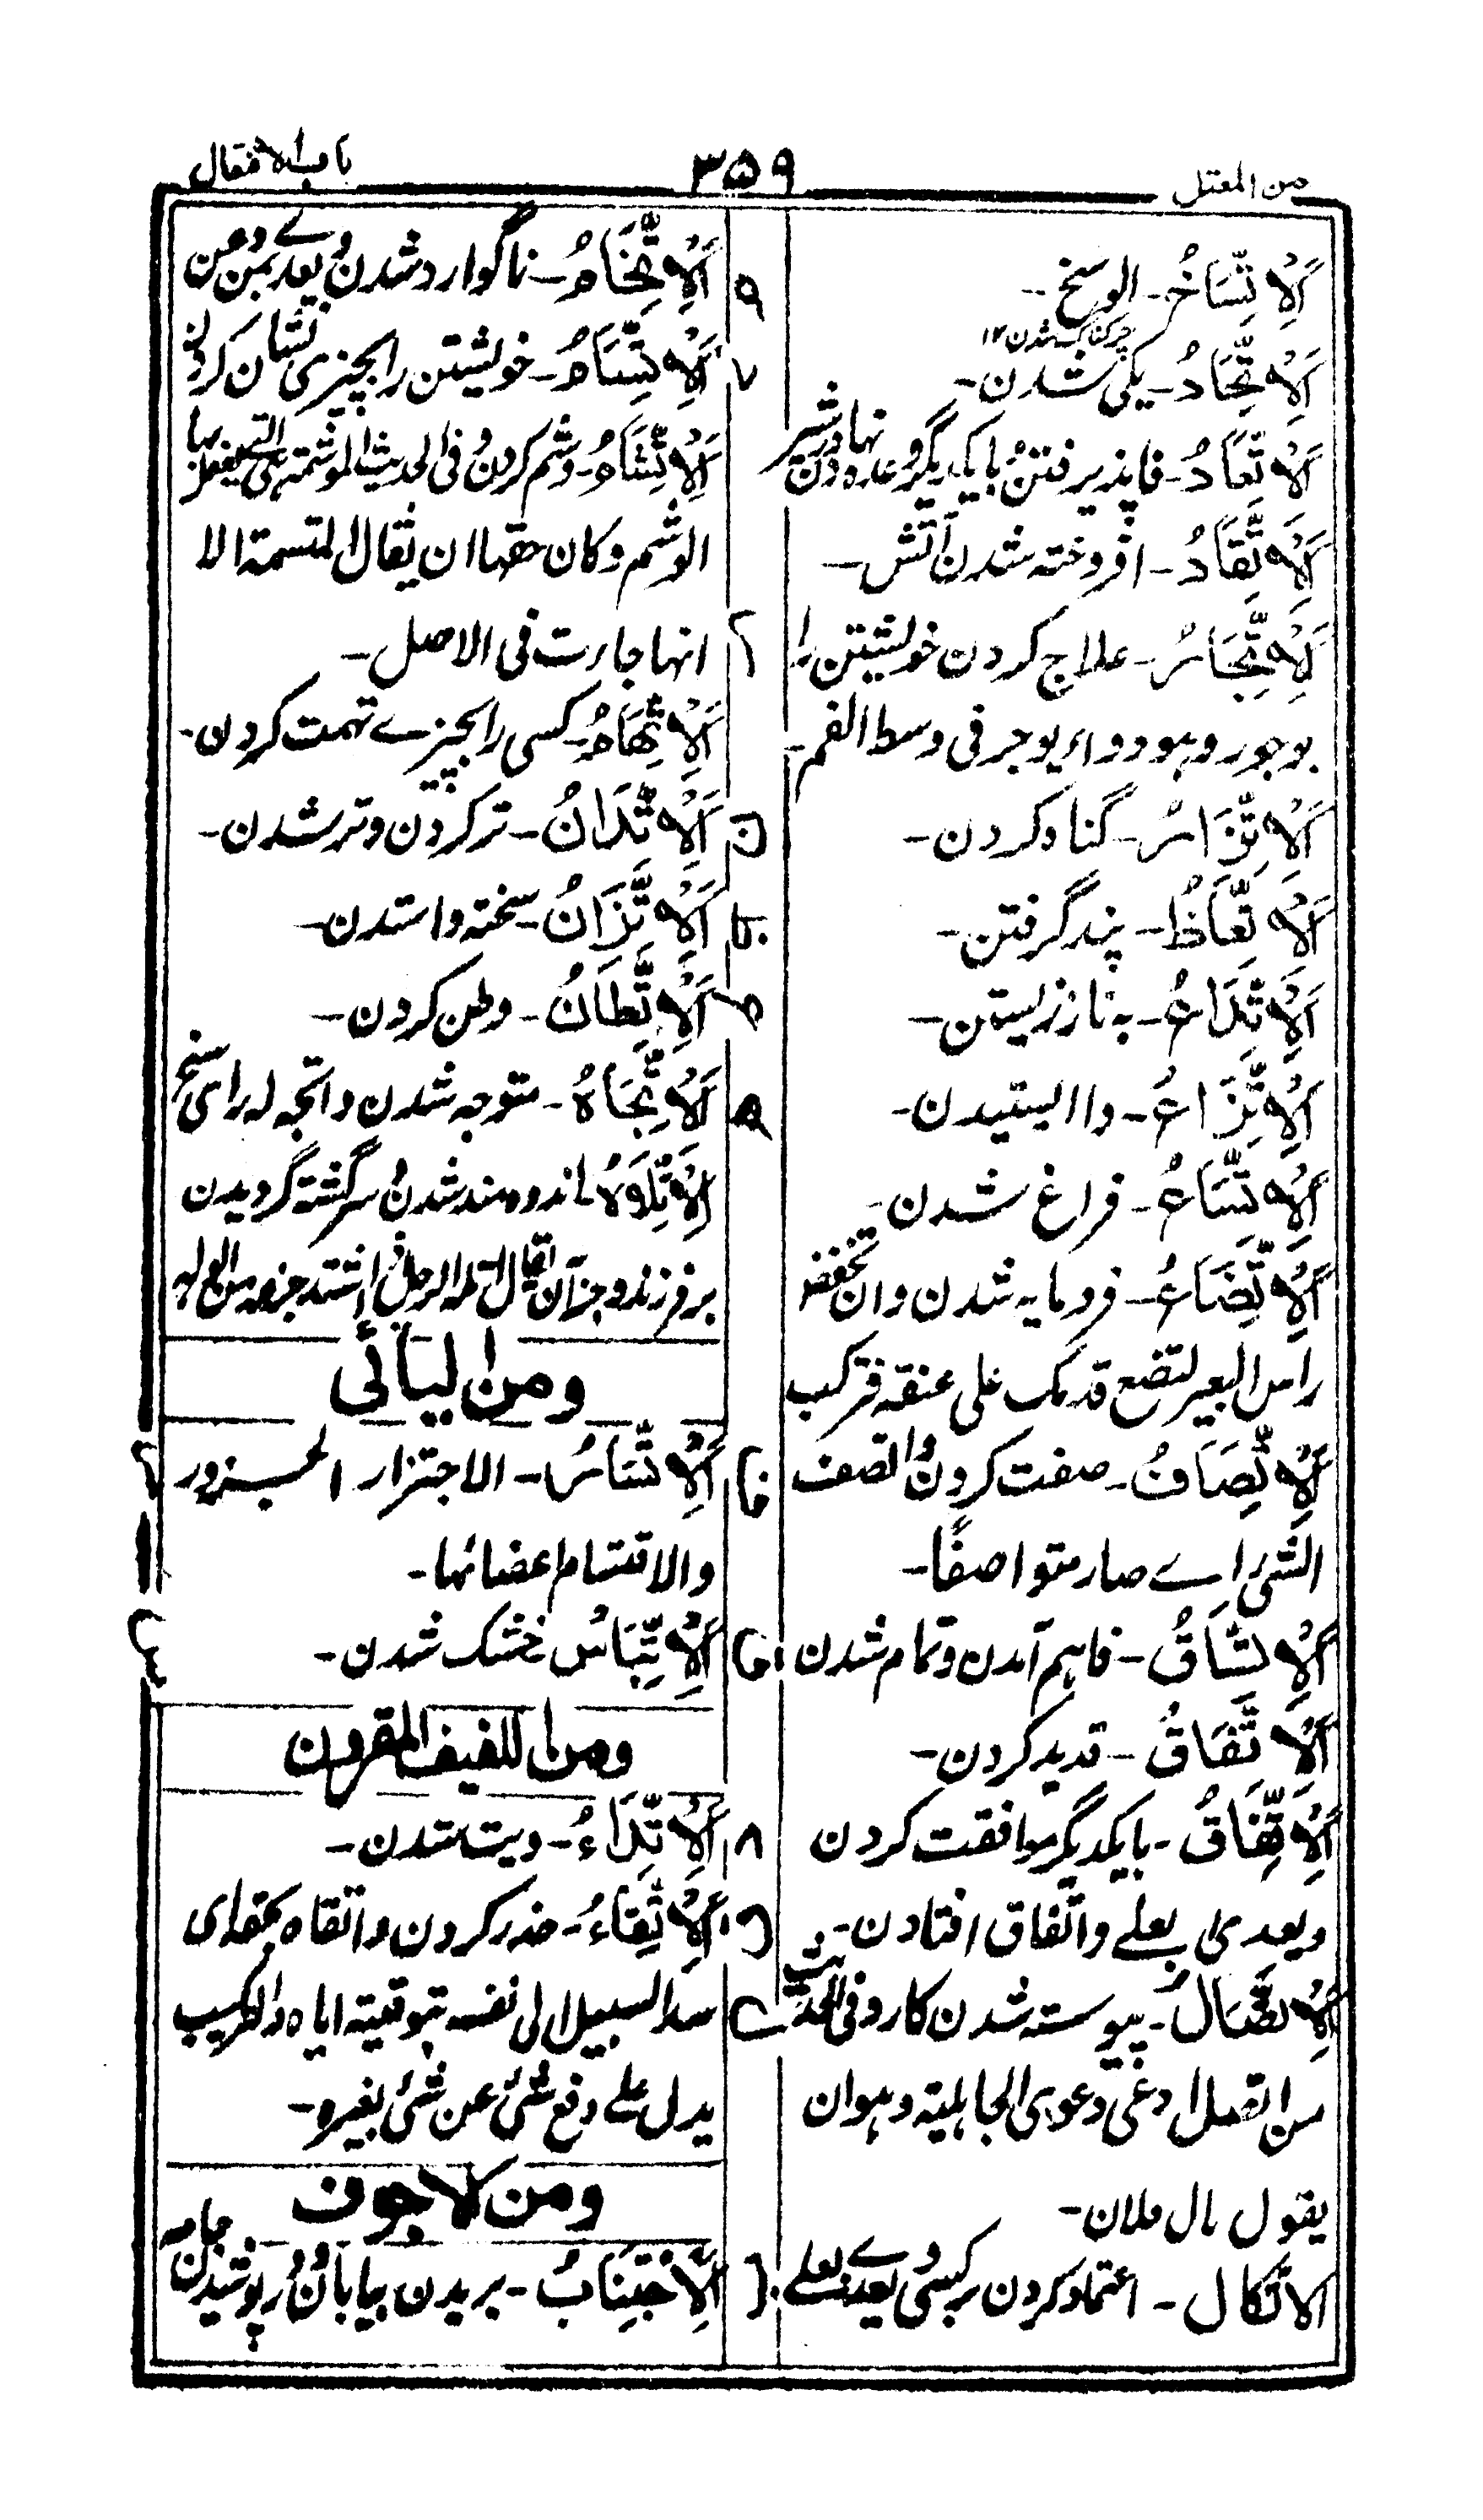 من المعتل
۳۵۹
باب الافتعال
اَلْاِتِّسَاخُ - الوسخ -
چرکناک شدن ۱۲
اَلْاِتِّحَادُ - یکی شدن -
اَلْاِتِّعَادُ - فاپذیرفتن با یکدیگر و
اَلْاِتِّقَادُ - افروخته شدن آتش -
اَلْاِتِّجَارُ - علاج کردن خویشتن را
بوجور وہو دواء یوجر فی وسط الفم -
اَلْاِتِّزَارُ - گناہ کردن -
اَلْاِتِّعَاظُ - پند گرفتن -
اَلْاِتِّدَاعُ - بہ ناز زیستن -
اَلْاِتِّزَاعُ - وا ایستیدن -
اَلْاِتِّسَاعُ - فراغ شدن -
اَلْاِتِّضَاعُ - فرومایہ شدن وان تخفض
راس البعیر لتضع قدمک علی عنقه فترکب
اَلْاِتِّصَافُ - صفت کردن و اتصف
الشئ اے صار متواصفًا -
اَلْاِتِّسَاقُ - فاہم آمدن و تمام شدن
اَلْاِتِّفَاقُ - قدید کردن -
اَلْاِتِّفَاقُ - با یکدیگر موافقت کردن
ویعدی بعلے واتفاق افتادن -
اَلْاِتِّصَالُ - پیوسته شدن کار و فی الحدیث
من اتصل ای دعی دعوی الجاہلیة وہو ان
یقول یال فلان -
الاتکال - اعتماد کردن بر کسی و یعدے بعلے
۹ اَلْاِتِّخَامُ - ناگوارد شدن و یعدے بمن و عن
اَلْاِتِّسَامُ - خویشتن را بچیزی نشان کردن
اَلْاِتِّشَامُ - وشم کردن و فی الحدیث الموتشمة ہی التی یفعل بہا
الوشم وکان حقها ان یقال المتسمة الا
انها جاءت فی الاصل -
اَلْاِتِّهَامُ - کسی را بچیزے تهمت کردن -
اَلْاِتِّدَانُ - تر کردن و تر شدن -
اَلْاِتِّزَانُ - سخته واستدن -
اَلْاِتِّطَانُ - وطن کردن -
اَلْاِتِّجَاهُ - متوجه شدن واتجه له رای سنح
اَلْاِتِّلَاهُ اندوہمند شدن و سرگشته گردیدن
بر فرزند و جز آن یقال اتله الرجل ای اشتد جزعه من الوله
ومن الیائی
اَلْاِتِّسَارُ - الاجتزار الجزور
والاقتسام اعضائها -
اَلْاِتِّبَاسُ خشک شدن -
ومن اللفیف المقرون
اَلْاِتِّدَاءُ - دیت ستدن -
اَلْاِتِّقَاءُ - حذر کردن واتقاہ بحقه ای
سد السبیل الی نفسه بتوقیته ایاہ والترکیب
یدل علے دفع شئ عن شئ بغیرہ -
ومن الاجوف
اَلْاِجْتِیَابُ - بریدن بیابان و پوشیدن جامه